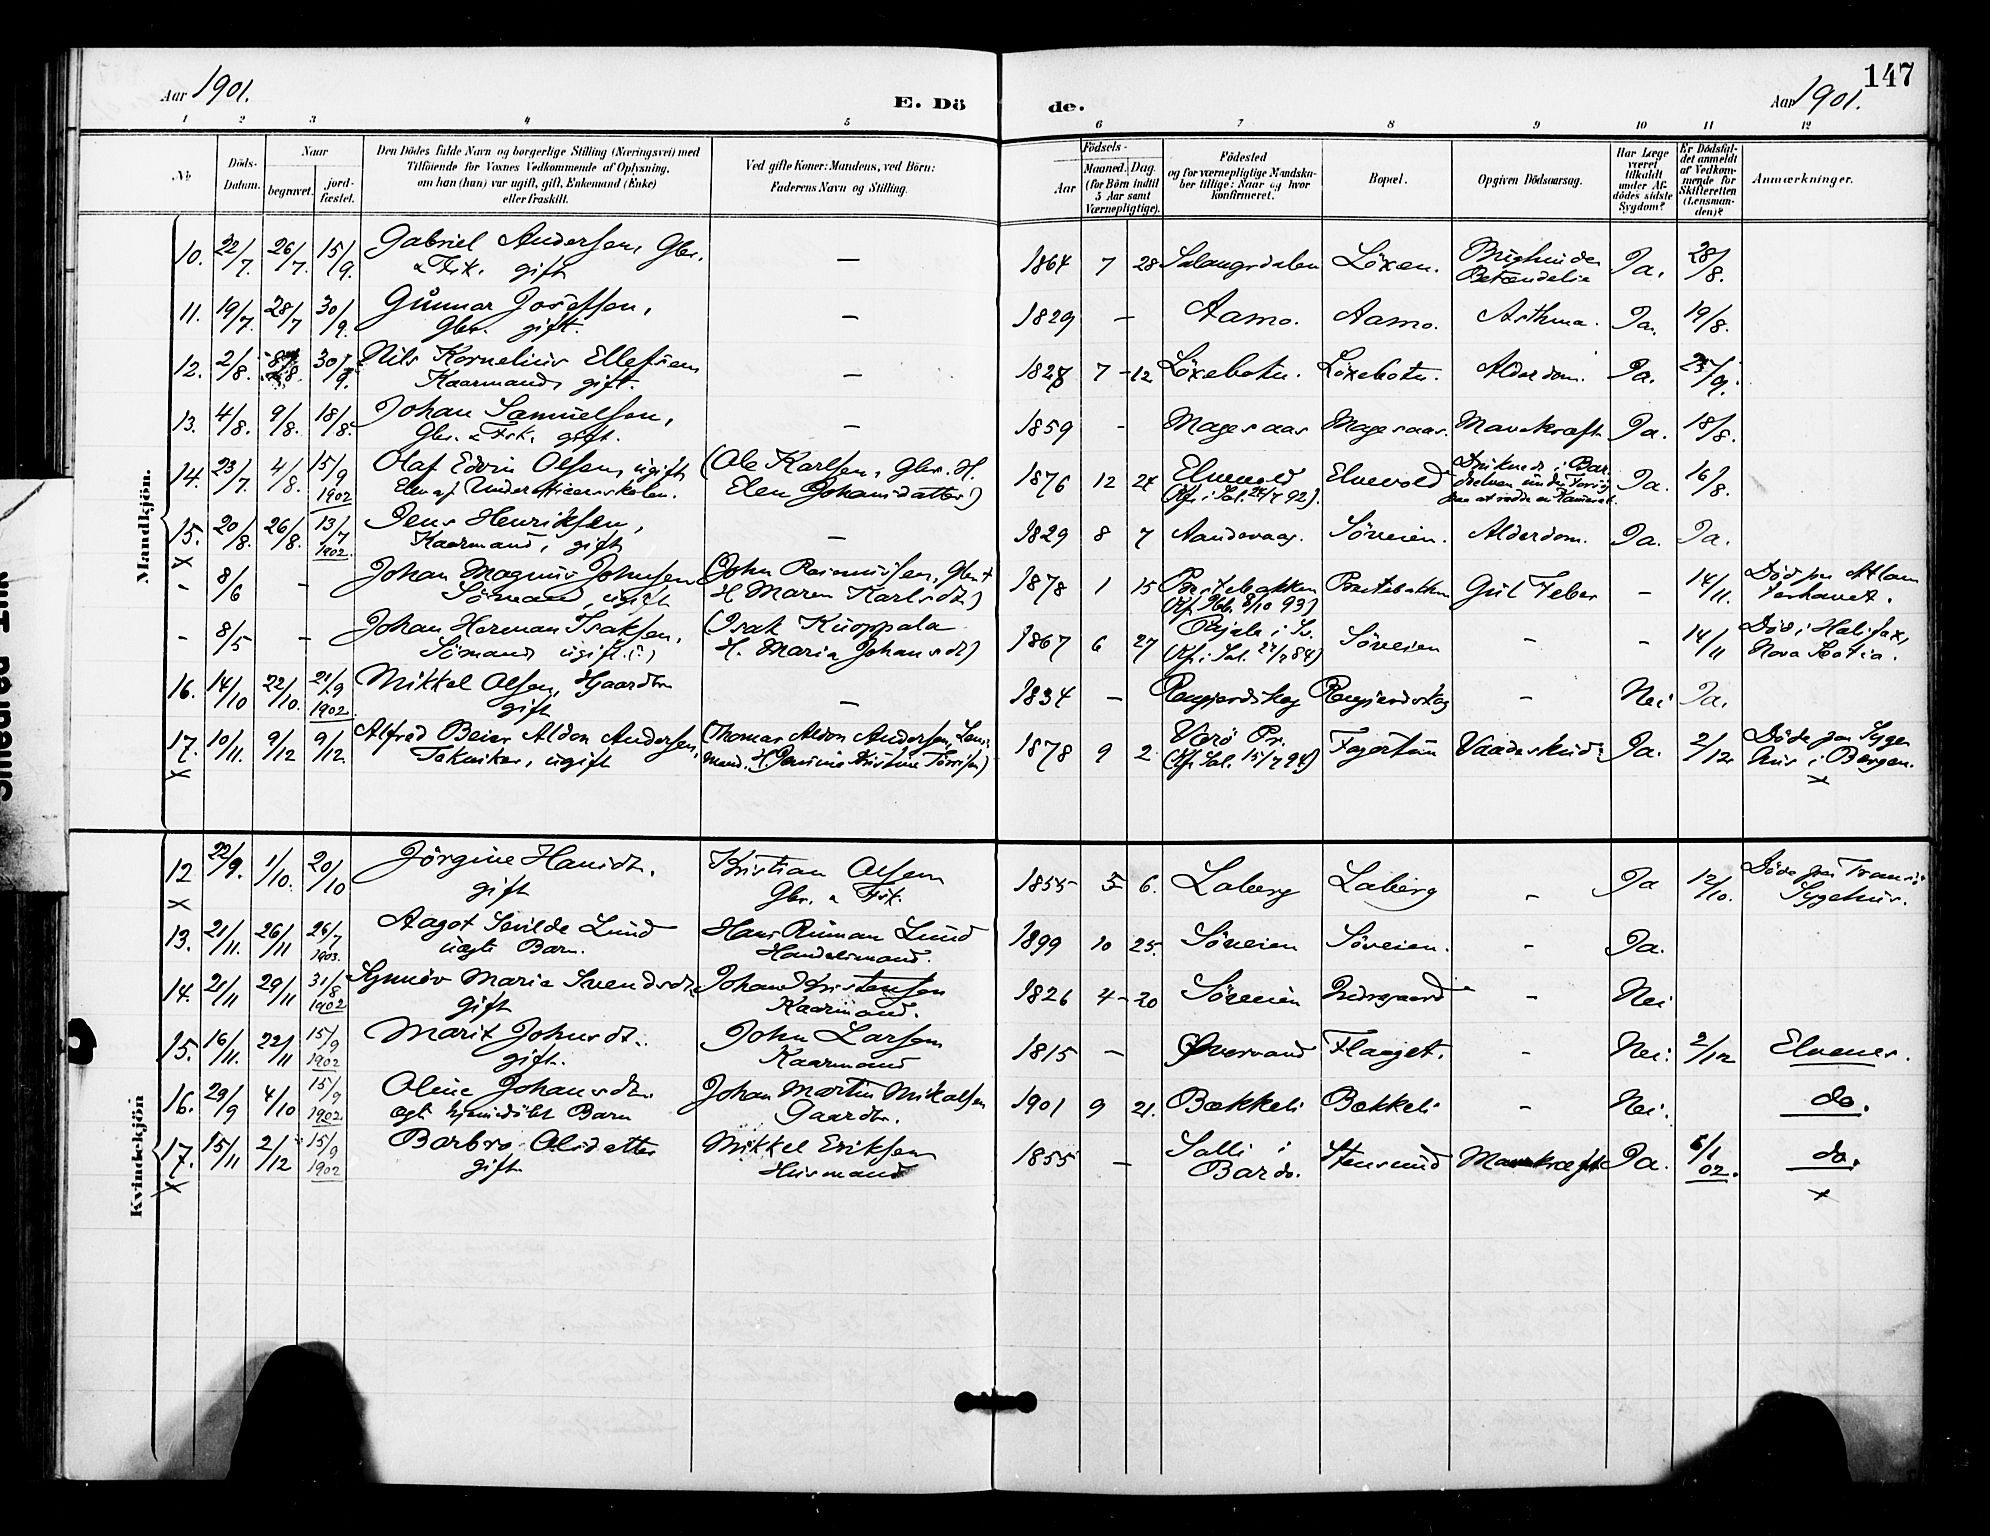 Aar 1901.
E. Dö
de.
Aar 1901.
147
1 2 3 4 5 6 7 8 9 10 11 12
No
Döds-
Datum.
Naar
begravet.
jord-
fæstet.
Den Dödes fulde Navn og borgerlige Stilling (Næringsvei) med
Tilföiende for Voxnes Vedkommende af Oplysning,
om han (hun) var ugift, gift, Enkemand (Enke)
eller fraskilt.
Ved gifte Koner: Mandens, ved Börn:
Faderens Navn og Stilling.
Födsels-
Aar
Maaned. Dag.
(for Börn indtil
5 Aar samt
Værnepligtige).
Födested
og for værnepligtige Mandska-
ber tillige: Naar og hvor
konfirmeret.
Bopæl.
Opgiven Dödsaarsag.
Har Læge
været
tilkaldt
under Af-
dödes sidste
Sygdom?
Er Dödsfal-
det anmeldt
af Vedkom-
mende for
Skifteretten
(Lensman-
den)?
Anmærkninger.
Mandkjön.
10. 22/7. 26/7. 15/9. Gabriel Andersen, Gbr. — 1864 7 28 Salangsdalen Löxen. Brysthinde Ja. 28/8.
& Fsk. gift Betændelse
11. 19/7. 28/7 30/9. Gunnar Josefsen, — 1829 — Aamo. Aamo. Asthma. Ja. 19/8.
Gbr. gift.
12. 2/8. 30/9. Nils Kornelius Ellefsen — 1827 7 - 12 Löxebotn. Löxebotn. Alderdom. Ja. 25/9.
Kaarmand, gift.
13. 4/8. 9/8. 18/8. Johan Samuelsen, — 1859 - Magesaas Magesaas. Mavekræft. Ja. 18/8.
Gbr. & Fsk. gift.
14. 23/7. 4/8. 15/9 1902 Olaf Edvin Olsen, ugift (Ole Karlsen, Gbr. H. 1876 12 24 Elvevold Elvevold Druknede i Bar- Ja. 16/8.
Elev af Underofficersskolen. Elen Johansdatter) (Kf. i Sal. 24/7 92). under Forsög
paa at redde en Kamerat.
15. 20/8. 26/8. 13/7 1902. Jens Henriksen, — 1829 8 7 Aandevaag. Söveien. Alderdom. Ja. Ja.
x Kaarmand, gift
- 8/6 - Johan Magnus Johnsen (John Rasmussen, Gbr. & 1878 1 15 Prestebakken Prestebakken Gul Feber - 14/11. Död paa Atlan
Sömand, ugift H. Maren Karlsdt.) (Kf. Ibb. 8/10 93) terhavet.
- 8/5 - Johan Herman Isaksen, (Isak Kuoppala 1867 6 27 Pajala i Sv. Söveien - - 14/11 Död i Halifax,
Sömand ugift (?) H. Maria Johansdt) (Kf. i Sal. 27/7 84) Nova Scotia.
16. 14/10 22/10. 21/9 1902. Mikkel Olsen, Gaardbr. — 1834 — - Nei Ja.
gift
17. 10/11. 9/12 9/12. Alfred Beier Aldon Andersen, (Thomas Aldon Andersen, Lens- 1878 9 2 Værö Pr. Fagertun Vaadeskud Ja. 2/12 Döde paa Syge
x Tekniker, ugift mand. H. (Kf. Sal. 15/7 94) hus i Bergen.
x
Kvindekjön
12 22/9. 1/10. 20/10 Jörgine Hansdt. Kristian Olsen 1855 5 6. Laberg Laberg - Ja 12/10. Döde paa Tromsö
x gift Gbr. & Fsk. Sygehus.
13. 21/11. 26/11 26/7 1903. Aagot Sevilde Lund Hans Rinman Lund 1899 10 25. Söveien Söveien. - Ja.
uegte Barn. Handelsmand.
14. 21/11 29/11 31/8 1902 Synnöv Marie Svendsdt. Johan Kristensen 1826 4 - 20 Söveien - Nei
gift Kaarmand.
15. 16/11. 22/11 15/9 1902 Marit Johnsdt. John Larsen 1815 — Övervand Flaaget. - Nei. 2/12 Elvenes.
gift. Kaarmand
16. 29/9 4/10 15/9 1902. Oline Johansdt. Johan Martin Mikalsen 1901 9 21. Bækkeli Bækkeli - Nei. do.
egt. hjemdöbt Barn Gaardbr.
17. 15/11 2/12 15/9 1902 Barbro Olsdatter Mikkel Eriksen 1855 — Salli i Stensund Mavekræft Ja. 6/1 02. do.
x gift Husmand Bardo. x